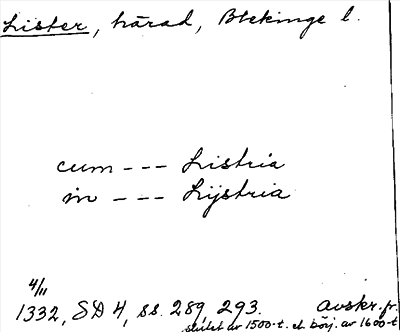 Lister, härad, Blekinge l.
cum --- Listria
in --- Lijstria
4/11
1332, SD 4, ss. 289, 293. Avskr. fr.
slutet av 1500-t. el. börj. av 1600-t